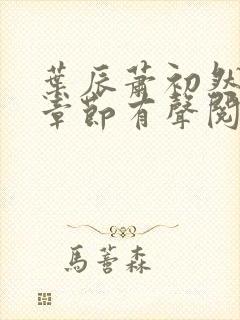 葉辰蕭初然
章節有聲閱
馬薔森